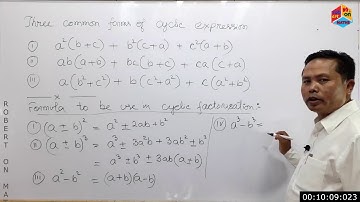 Three common forms of cyclic expression
(i) a²(b+c) + b²(c+a) + c²(a+b)
(ii) ab(a+b) + bc(b+c) + ca(c+a)
(iii) a(b²+c²) + b(c²+a²) + c(a²+b²)
x
Formula to be use in cyclic factorisation:
(i) (a ± b)² = a² ± 2ab + b²
(ii) (a ± b)³ = a³ ± 3a²b + 3ab² ± b³
= a³ ± b³ ± 3ab(a ± b)
(iii) a² - b² = (a+b)(a-b)
(iv) a³ - b³ =
ROBERT ON MA
MATHS
00:10:09:023